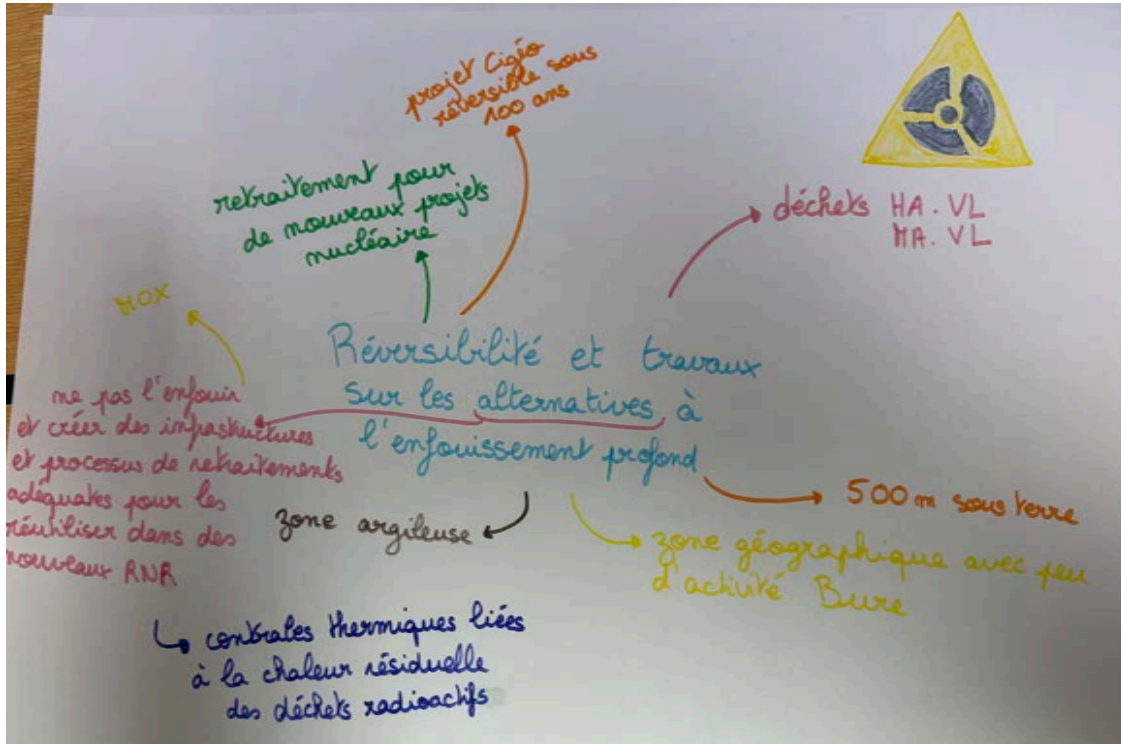 projet Cigéo
réversible sous
100 ans
retraitement pour
de nouveaux projets
nucléaire
déchets HA.VL
MA.VL
MOX
Réversibilité et travaux
sur les alternatives à
l'enfouissement profond
ne pas l'enfouir
et créer des infrastuctures
et processus de retraitements
adéquates pour les
réutiliser dans des
nouveaux RNR
zone argileuse
500 m sous terre
zone géographique avec peu
d'activité Bure
centrales thermiques liées
à la chaleur résiduelle
des déchets radioactifs